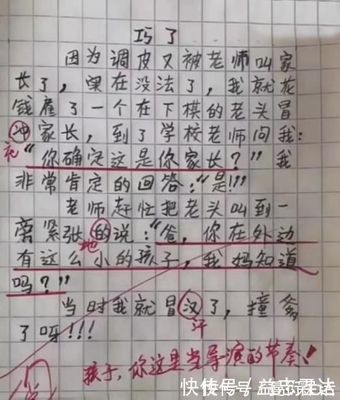 巧了
因为调皮又被老师叫家
长了，实在没法了，我就花
钱雇了一个在下棋的老头冒
冲家长，到了学校老师问我：
充
“你确定这是你家长？”我
非常肯定的回答：“是!!!”
老师赶忙把老头叫到一
旁紧张的说：“爸，你在外边
地
有这么小的孩子，我妈知道
吗？”
当时我就冒汉了，撞爹
汗
了呀!!!
孩子，你这是当导演的节奏！
阅
快传号/益志君达